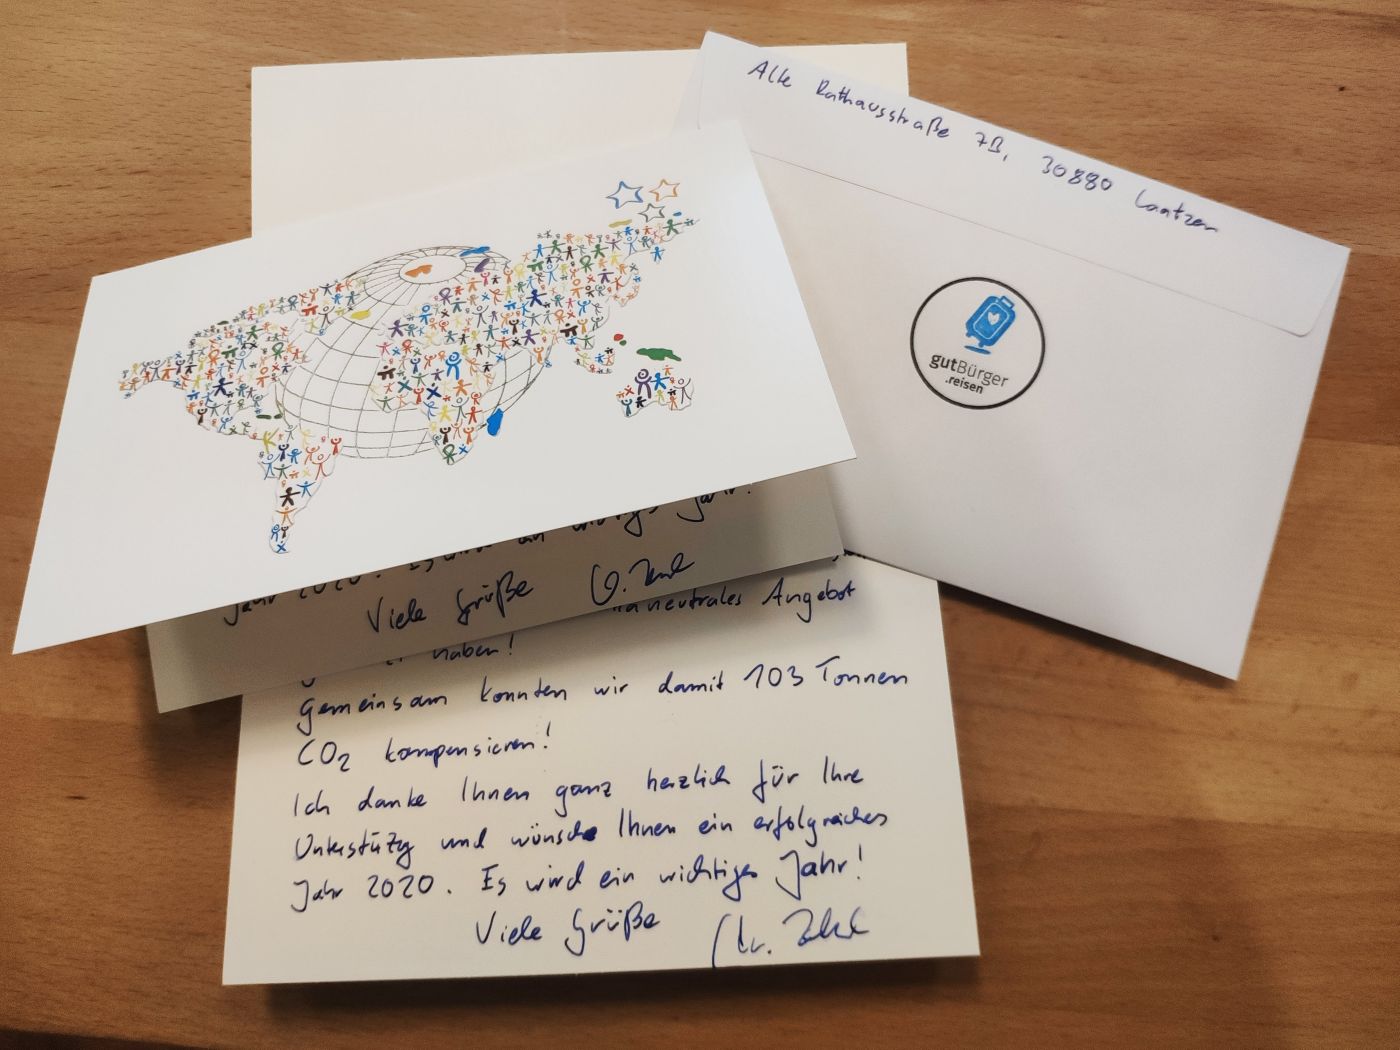 Alte Rathausstraße 7B, 30880 Laatzen
gutBürger
.reisen
Jahr!
Jahr 2020. Es wird ein wichtiges
Viele Grüße
neutrales Angebot
haben!
Gemeinsam konnten wir damit 103 Tonnen
CO2 kompensieren!
Ich danke Ihnen ganz herzlich für Ihre
Unterstützg und wünsche Ihnen ein erfolgreiches
Jahr 2020. Es wird ein wichtiges Jahr!
Viele Grüße